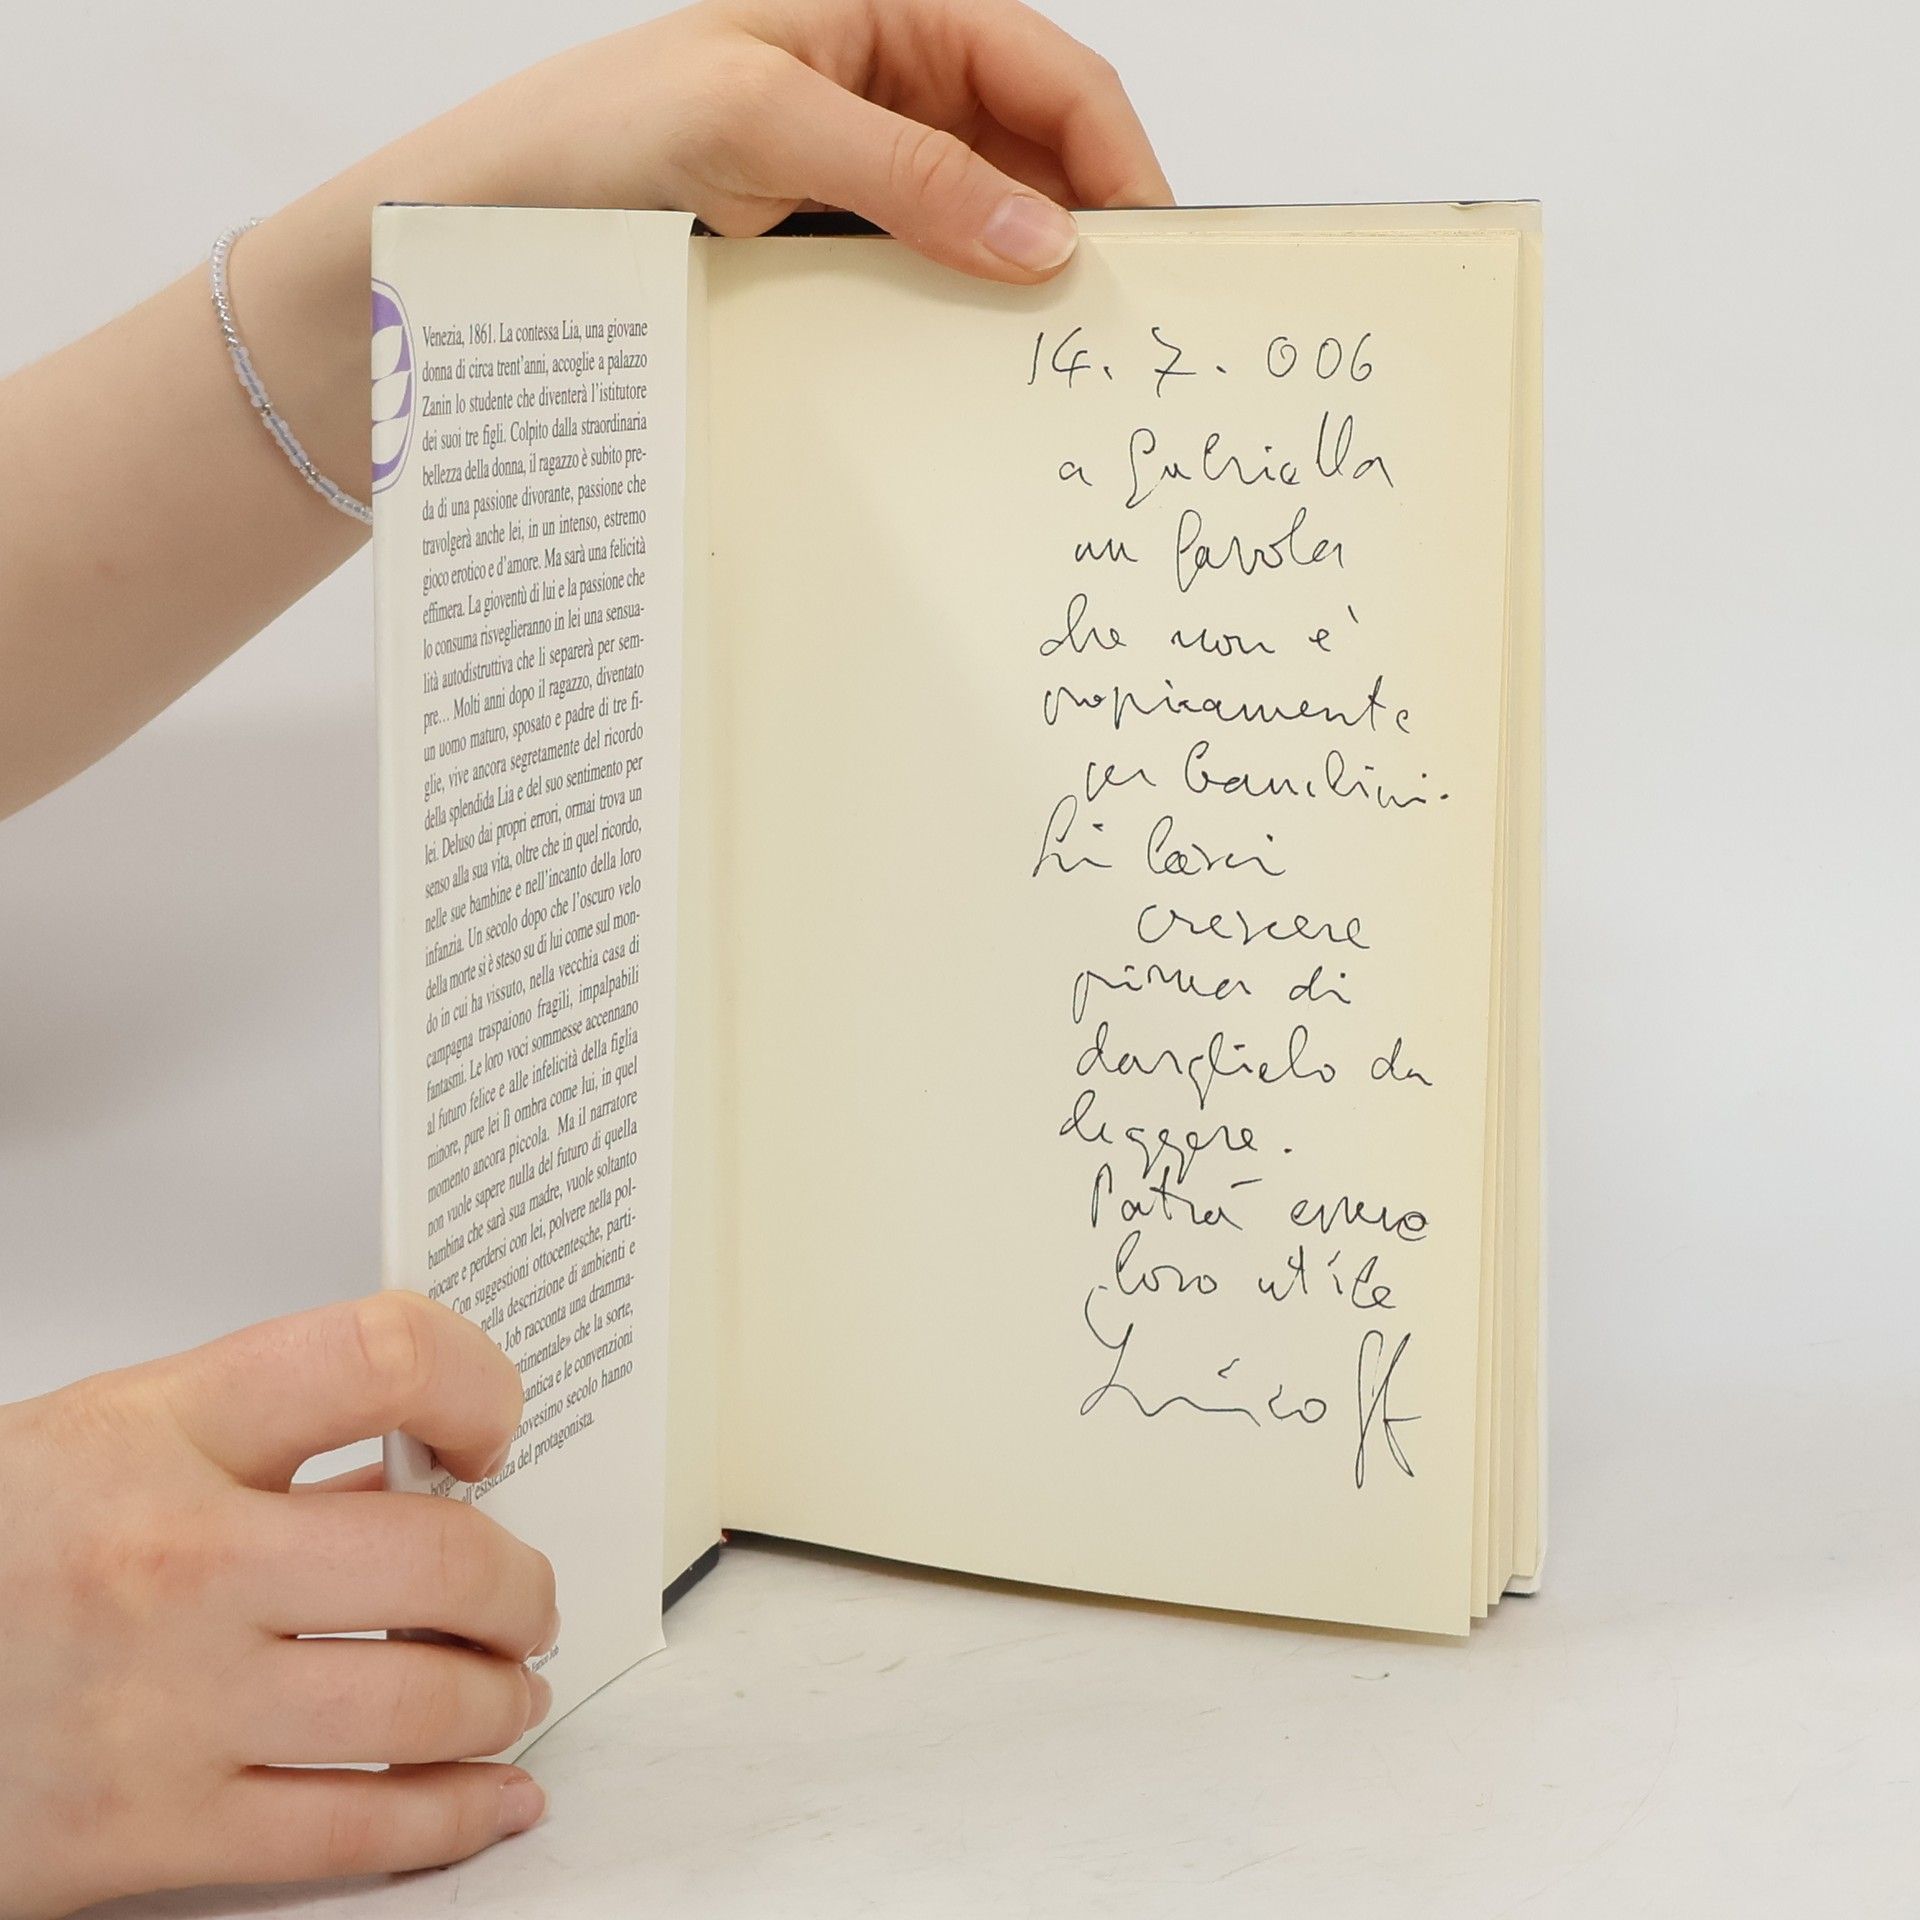 Venezia, 1861. La contessa Lia, una giovane
donna di circa trent'anni, accoglie a palazzo
Zanin lo studente che diventerà l'istitutore
dei suoi tre figli. Colpito dalla straordinaria
bellezza della donna, il ragazzo è subito pre-
da di una passione divorante, passione che
travolgerà anche lei, in un intenso, estremo
gioco erotico e d'amore. Ma sarà una felicità
effimera. La gioventù di lui e la passione che
lo consuma risveglieranno in lei una sensua-
lità autodistruttiva che li separerà per sem-
pre... Molti anni dopo il ragazzo, diventato
un uomo maturo, sposato e padre di tre fi-
glie, vive ancora segretamente del ricordo
della splendida Lia e del suo sentimento per
lei. Deluso dai propri errori, ormai trova un
senso alla sua vita, oltre che in quel ricordo,
nelle sue bambine e nell'incanto della loro
infanzia. Un secolo dopo che l'oscuro velo
della morte si è steso su di lui come sul mon-
do in cui ha vissuto, nella vecchia casa di
campagna traspaiono fragili, impalpabili
fantasmi. Le loro voci sommesse accennano
al futuro felice e alle infelicità della figlia
minore, pure lei lì ombra come lui, in quel
momento ancora piccola. Ma il narratore
non vuole sapere nulla del futuro di quella
bambina che sarà sua madre, vuole soltanto
giocare e perdersi con lei, polvere nella pol-
Con suggestioni ottocentesche, parti-
nella descrizione di ambienti e
Job racconta una dramma-
ntimentale» che la sorte,
antica e le convenzioni
novesimo secolo hanno
ell'esistenza del protagonista.
Enrico Job
14.7.006
a Gabriella
un favola
che non è
propriamente
per bambini.
Li lasci
crescere
prima di
darglielo da
leggere.
Potrà essere
loro utile
Enrico